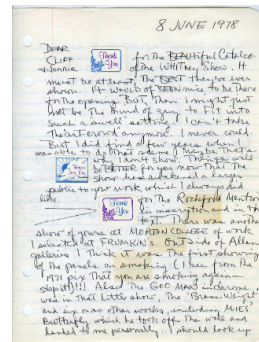 8 JUNE 1978
DEAR
CLIFF
Thank You
for the BEAUtiful Catalog
of the WHITNEY Show. It
must be at least, The BEST they've ever
shown. It would of BEEN nice to be there
for the opening But, Then I might just
not be the kind of guy to fit into
such a small setting. I can't take
The art crowd anymore. I never could.
But I did find a few years when I
was able to do that
why I don't show. This
BETTER for you now that The
Show has awakened a larger
public to your work, which I always did
like.
Thank You
for the Rockford
inscription and in the
There was another
show of yours at MORTON COLLEGE of work
I selected at FRUMKIN'S. Outside of Allan
galleries I think it was The first showing
of the panels on smoking (I see from the
1971 pix That you are smoking again
stop it)!!! Also The GOO MAN
was in That little show, The "Brass Weight"
and six or so other works, including MIES
Butterfly which he took off The wall and
handed to me personally. I should look up